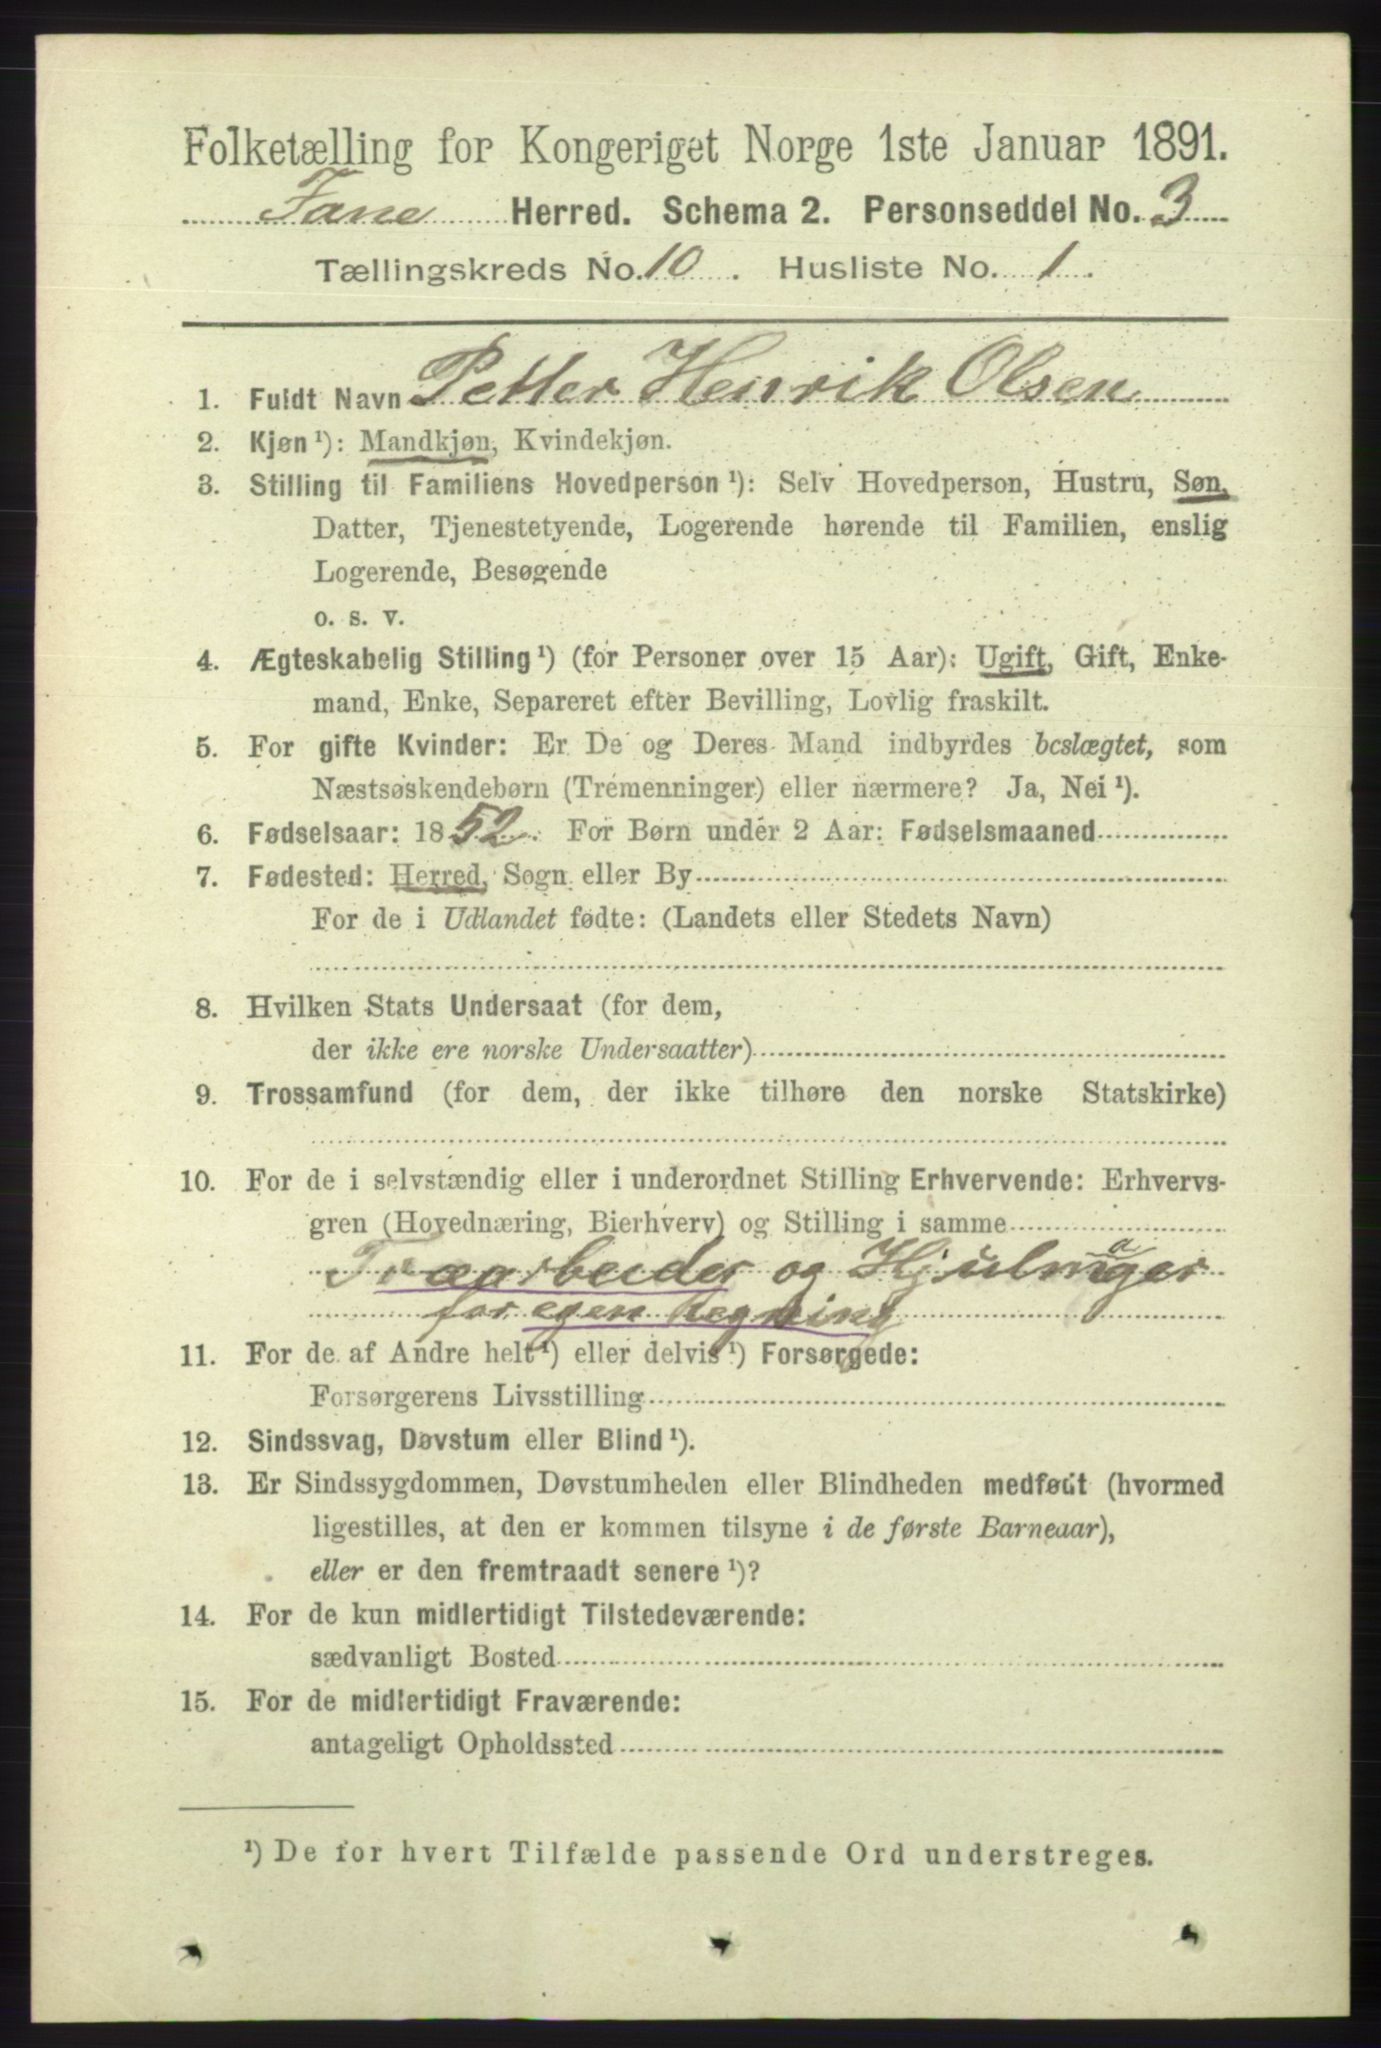 Folketælling for Kongeriget Norge 1ste Januar 1891.
Fane Herred. Schema 2. Personseddel No. 3
Tællingskreds No. 10. Husliste No. 1.
1. Fuldt Navn Petter Henrik Olsen
2. Kjøn ¹): Mandkjøn, Kvindekjøn.
3. Stilling til Familiens Hovedperson ¹): Selv Hovedperson, Hustru, Søn,
Datter, Tjenestetyende, Logerende hørende til Familien, enslig
Logerende, Besøgende
o. s. v.
4. Ægteskabelig Stilling ¹) (for Personer over 15 Aar): Ugift, Gift, Enke-
mand, Enke, Separeret efter Bevilling, Lovlig fraskilt.
5. For gifte Kvinder: Er De og Deres Mand indbyrdes beslægtet, som
Næstsøskendebørn (Tremenninger) eller nærmere? Ja, Nei ¹).
6. Fødselsaar: 1852. For Børn under 2 Aar: Fødselsmaaned
7. Fødested: Herred, Sogn eller By
For de i Udlandet fødte: (Landets eller Stedets Navn)
8. Hvilken Stats Undersaat (for dem,
der ikke ere norske Undersaatter)
9. Trossamfund (for dem, der ikke tilhøre den norske Statskirke)
10. For de i selvstændig eller i underordnet Stilling Erhvervende: Erhvervs-
gren (Hovednæring, Bierhverv) og Stilling i samme
Træarbeider og Hjulmager
for egen Regning
11. For de af Andre helt ¹) eller delvis ¹) Forsørgede:
Forsørgerens Livsstilling
12. Sindssvag, Døvstum eller Blind ¹).
13. Er Sindssygdommen, Døvstumheden eller Blindheden medfødt (hvormed
ligestilles, at den er kommen tilsyne i de første Barneaar),
eller er den fremtraadt senere ¹)?
14. For de kun midlertidigt Tilstedeværende:
sædvanligt Bosted
15. For de midlertidigt Fraværende:
antageligt Opholdssted
¹) De for hvert Tilfælde passende Ord understreges.